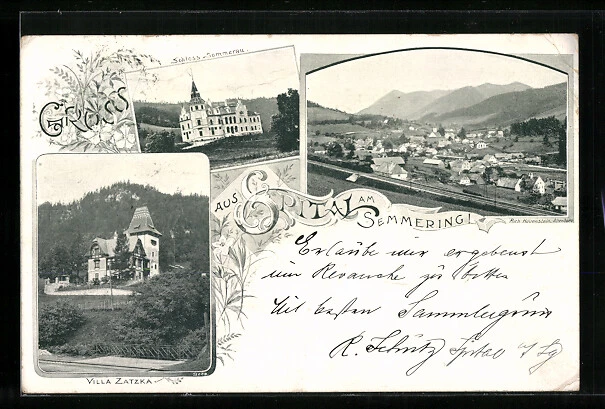 Schloss Sommerau.
GRUSS
AUS SPITAL AM SEMMERING!
VILLA ZATZKA
Erlaube mir ergebenst
um Revanche zu bitten
Mit besten Sammlergruss
R. Schütz Spital